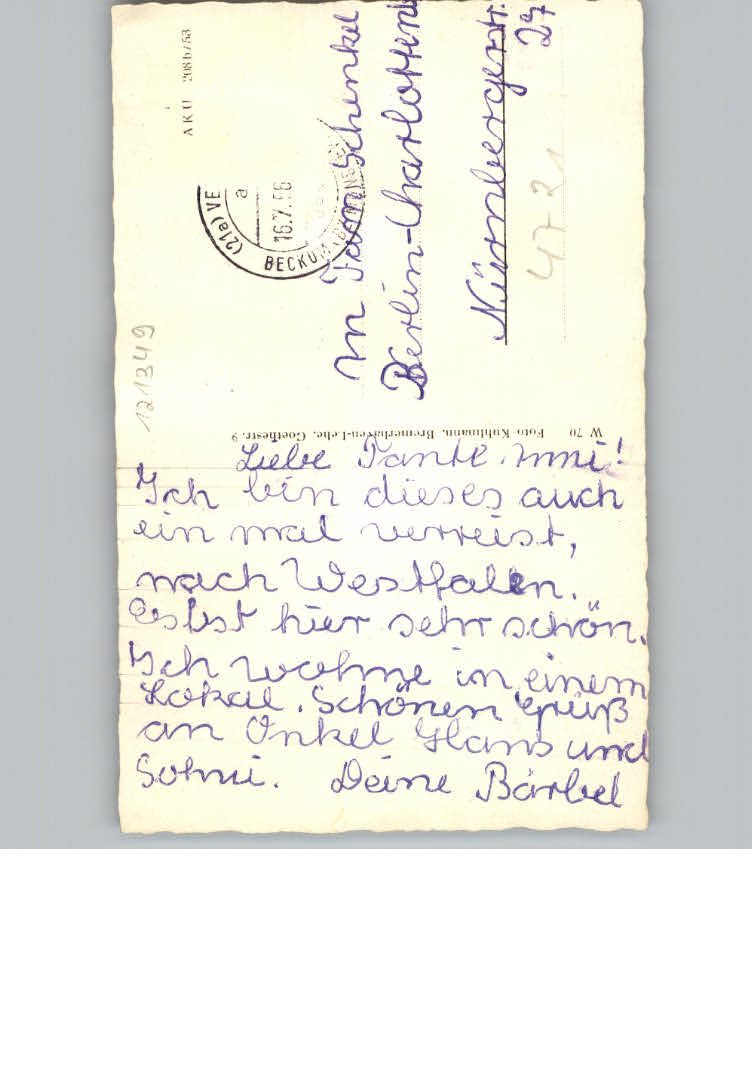 Liebe Tante Mmi!
Ich bin dieses auch
ein mal verreist,
nach Westfalen.
Es ist hier sehr schön.
Ich wohne in einem
Lokal. Schönen Gruß
an Onkel Hans und
Sohni. Deine Bärbel
W 70 Foto Kuhlmann, Bremerhaven-Lehe, Goethestr. 9
121349
AKU 208 b / 53
(21a) VE
a
16.7.56
BECKUM
Schenkel
Berlin-Charlotten
Nürnbergerstr.
27
4721